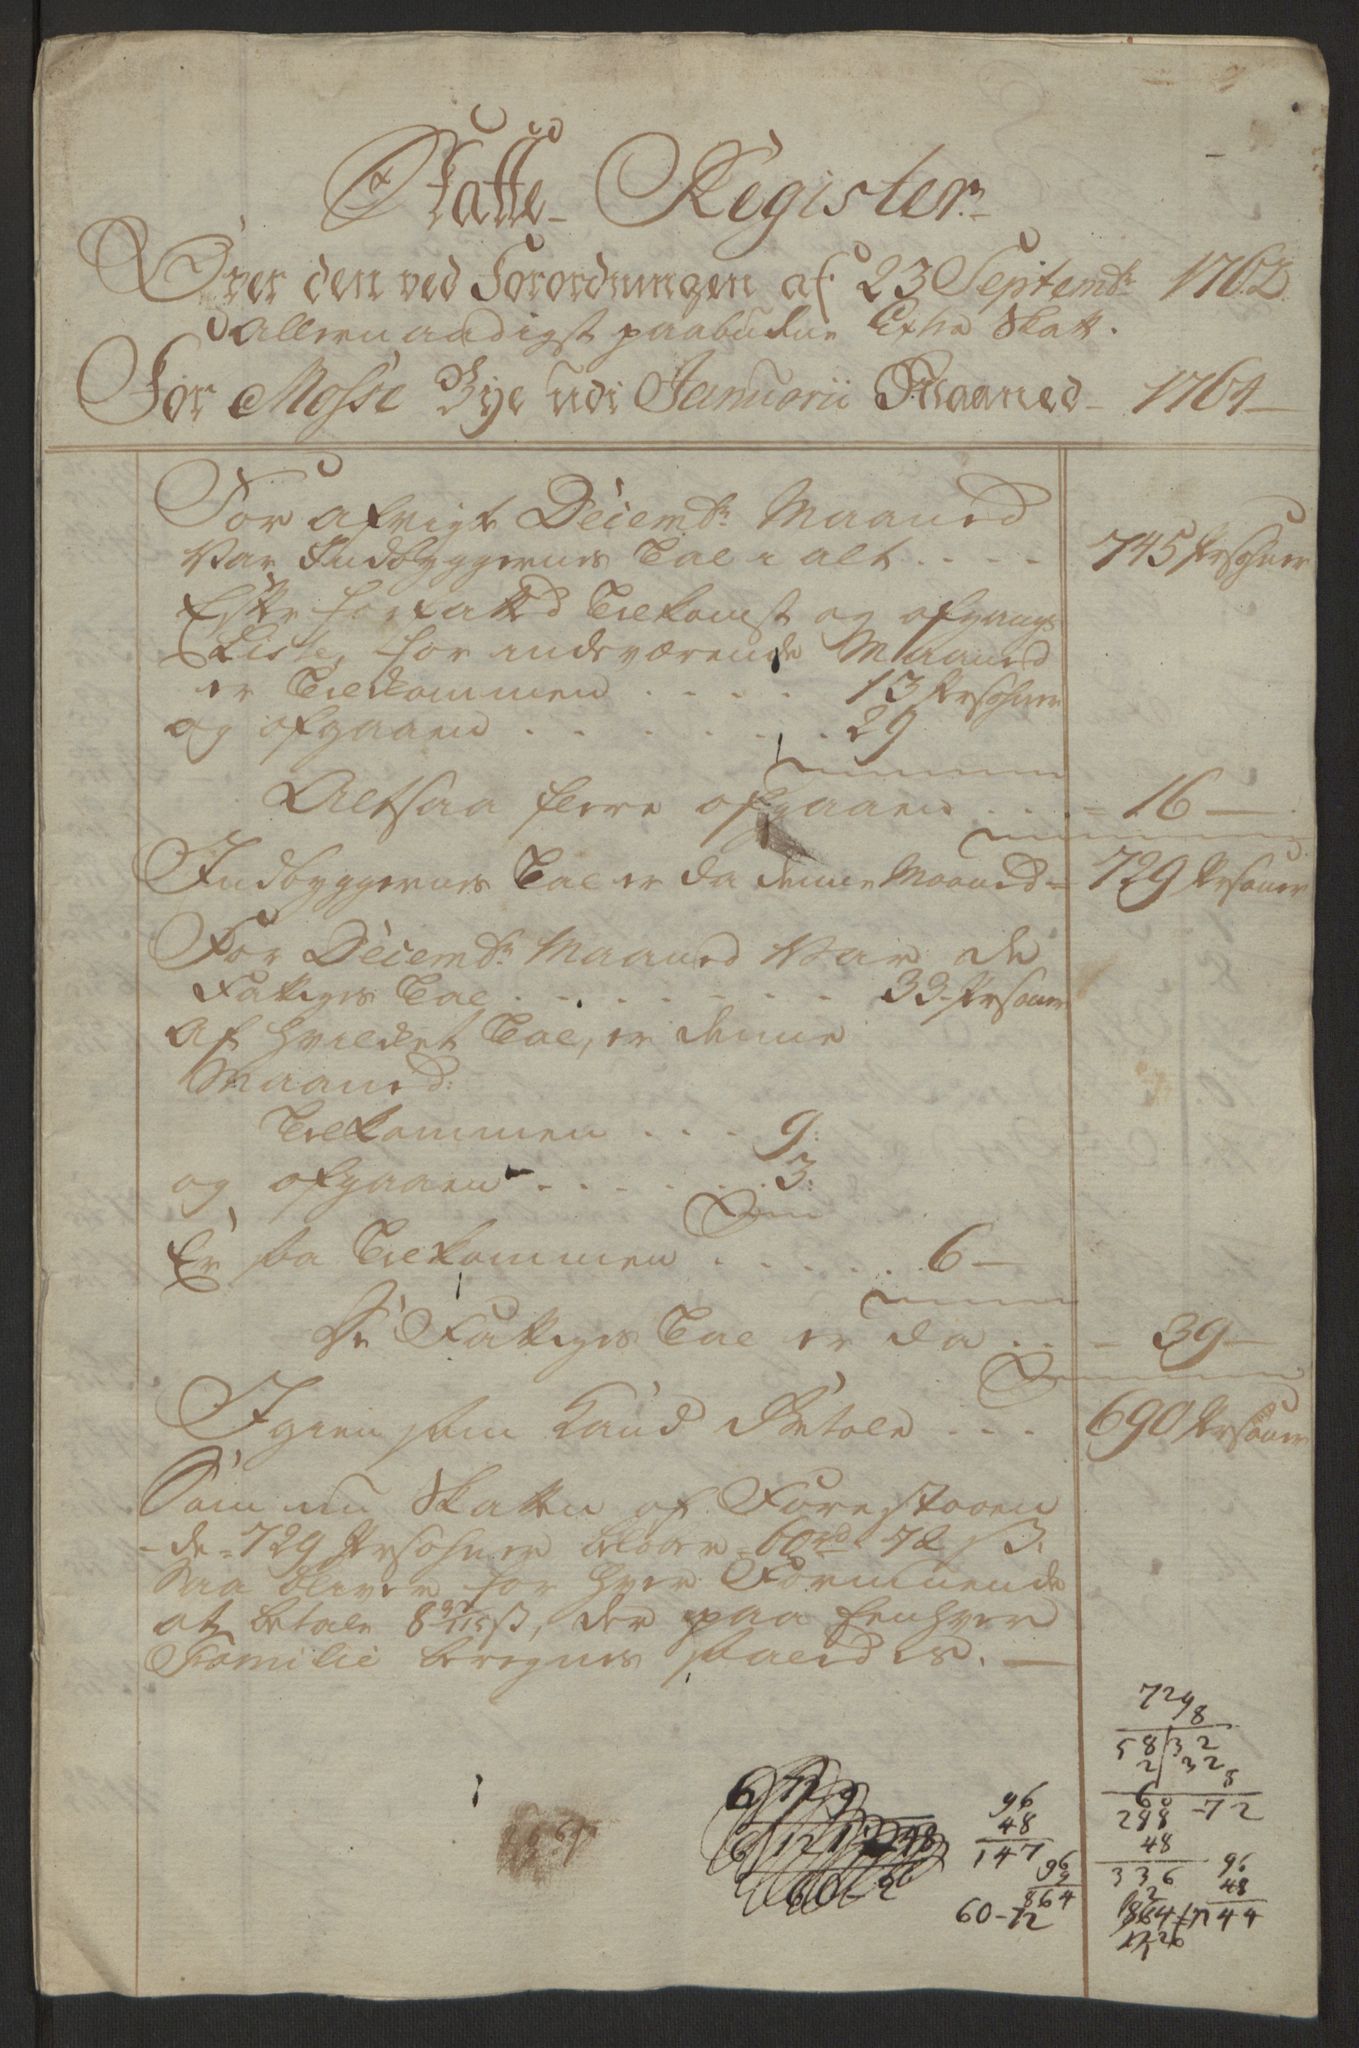 Skatte Register
Over den ved Forordningen af 23 Septembr 1762
allernaadigst paabudne Extra Skatt.
For Mosse Bye udi Januarii Maaned 1764
For afvigte Decembr Maaned
Var Indbyggernes Tal i alt . . . . 745 Persohner
Efter forfatted Tilkomst og afgangs
Liste, for indeværende Maaned
er Tilkommen . . . . 13 Persohner
og afgaaen . . . . . . . 29
Altsaa flere afgaaen . . . 16
Indbyggernes Tal er da denne Maaned 729 Persohner
For Decembr Maaned Var de
Fattiges Tal . . . . . . . 33 Persohner
Af hvilket Tal, er denne
Maaned:
Tilkommen . . . 9:
og afgaaen . . . . . 3:
Er saa Tilkommen . . . . . 6
De Fattiges Tal er da . . . 39
Igien som kand Betale . . . 690 Persohner
Som nu Skatten af Forestaaen
de 729 Persohner beløber 60 rd 72 ß.
Saa bliver for hver Formuende
at betale 8 ß, der paa Eenhver
Familie beregnes saaledes.
729
8
58|32
2|32
60 - 72
288
48
336
96
48
144
96
48
147
96
9
864
60-72